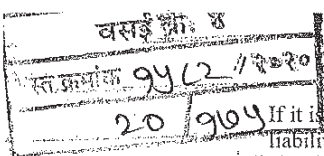 वसई क्र. ४
दस्त क्रमांक १५८२ / २०२०
२० / १७५
If it i
liabili